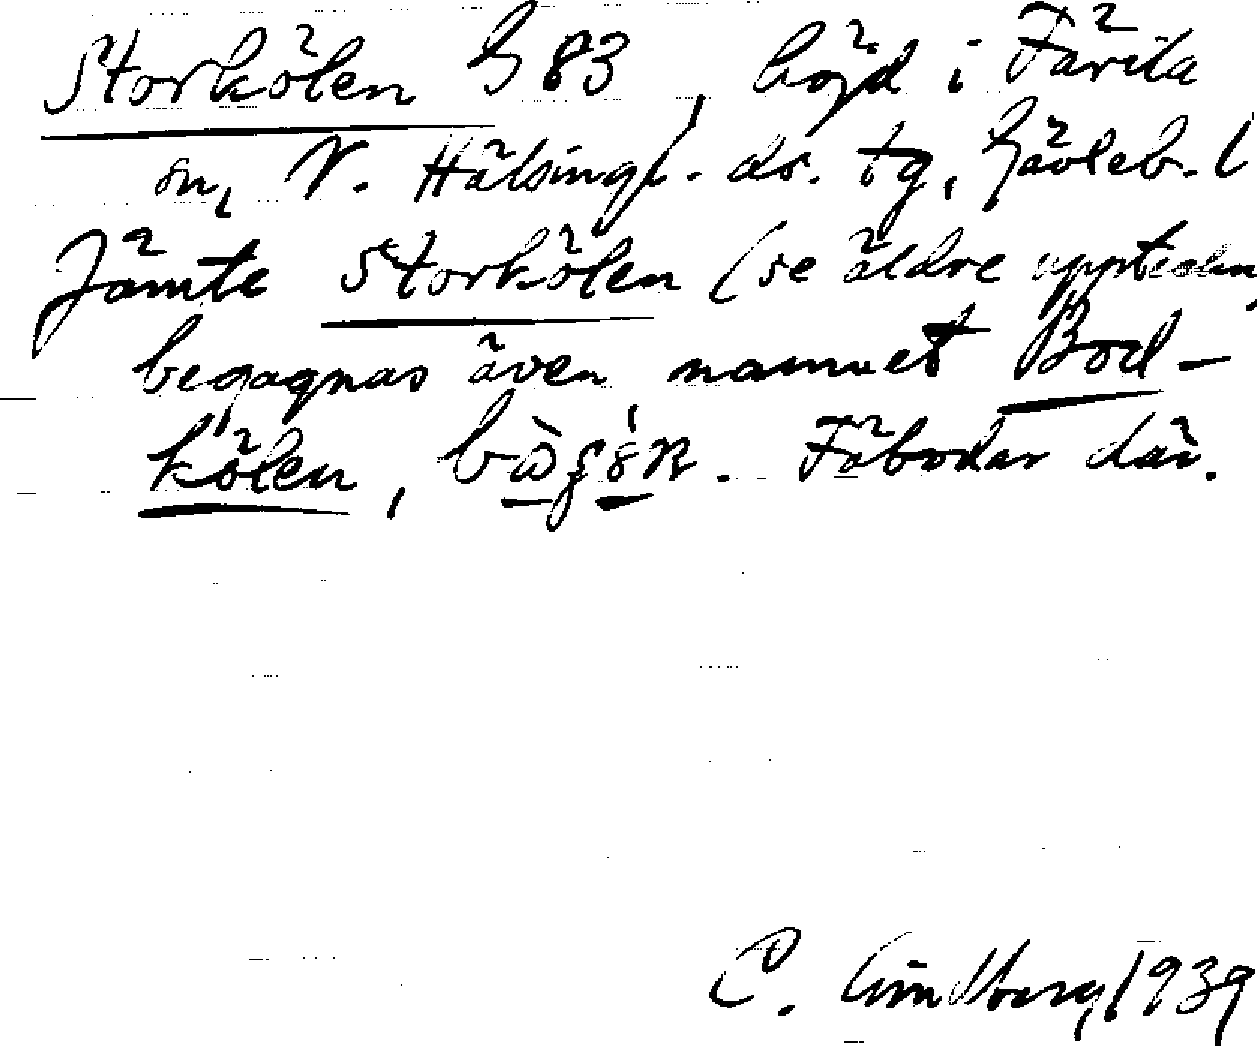 Storkölen G 83, höjd i Färila
sn, V. Hälsingl. ds. tg, Gävleb. l
Jämte Storkölen (se äldre uppteckn.
begagnas även namnet Bod-
kölen, . Fäbodar där.
C. Lindberg 1939